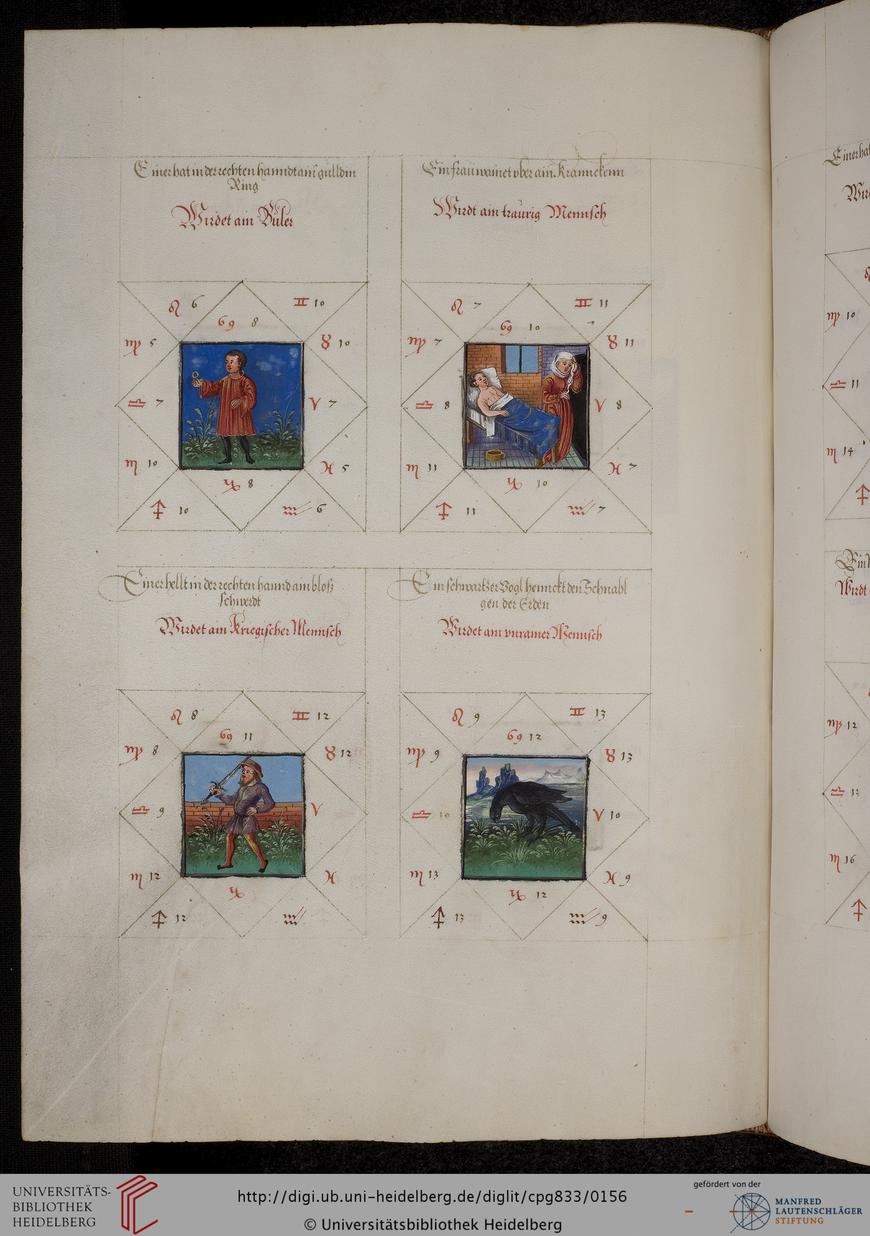 Einer hat in der rechten hanndt ain gulldin
Ring
Wirdet ain Buler
♌ 6
♊ 10
♋ 8
♍ 5
♉ 10
♎ 7
♈ 7
♏ 10
♓ 5
♑ 8
♐ 10
♒ 6
Ein frau wainet vber ain Kranncken
Wirdt ain traurig Mennsch
♌ 7
♊ 11
♋ 10
♍ 7
♉ 11
♎ 8
♈ 8
♏ 11
♓ 7
♑ 10
♐ 11
♒ 7
Einer hellt in der rechten hannd ain bloß
schwerdt
Wirdet ain Kriegischer Mennsch
♌ 8
♊ 12
♋ 11
♍ 8
♉ 12
♎ 9
♈
♏ 12
♓
♑
♐ 12
♒
Ein schwartzer Vogl hennckt den Schnabl
gen der Erden
Wirdet ain vnrainer Mennsch
♌ 9
♊ 13
♋ 12
♍ 9
♉ 13
♎ 10
♈ 10
♏ 13
♓ 9
♑ 12
♐ 13
♒ 9
♍ 10
♎ 11
♏ 14
♐
Wirdt
♍ 12
♎ 13
♏ 16
♐
UNIVERSITÄTS-
BIBLIOTHEK
HEIDELBERG
http://digi.ub.uni-heidelberg.de/diglit/cpg833/0156
© Universitätsbibliothek Heidelberg
gefördert von der
MANFRED
LAUTENSCHLÄGER
STIFTUNG